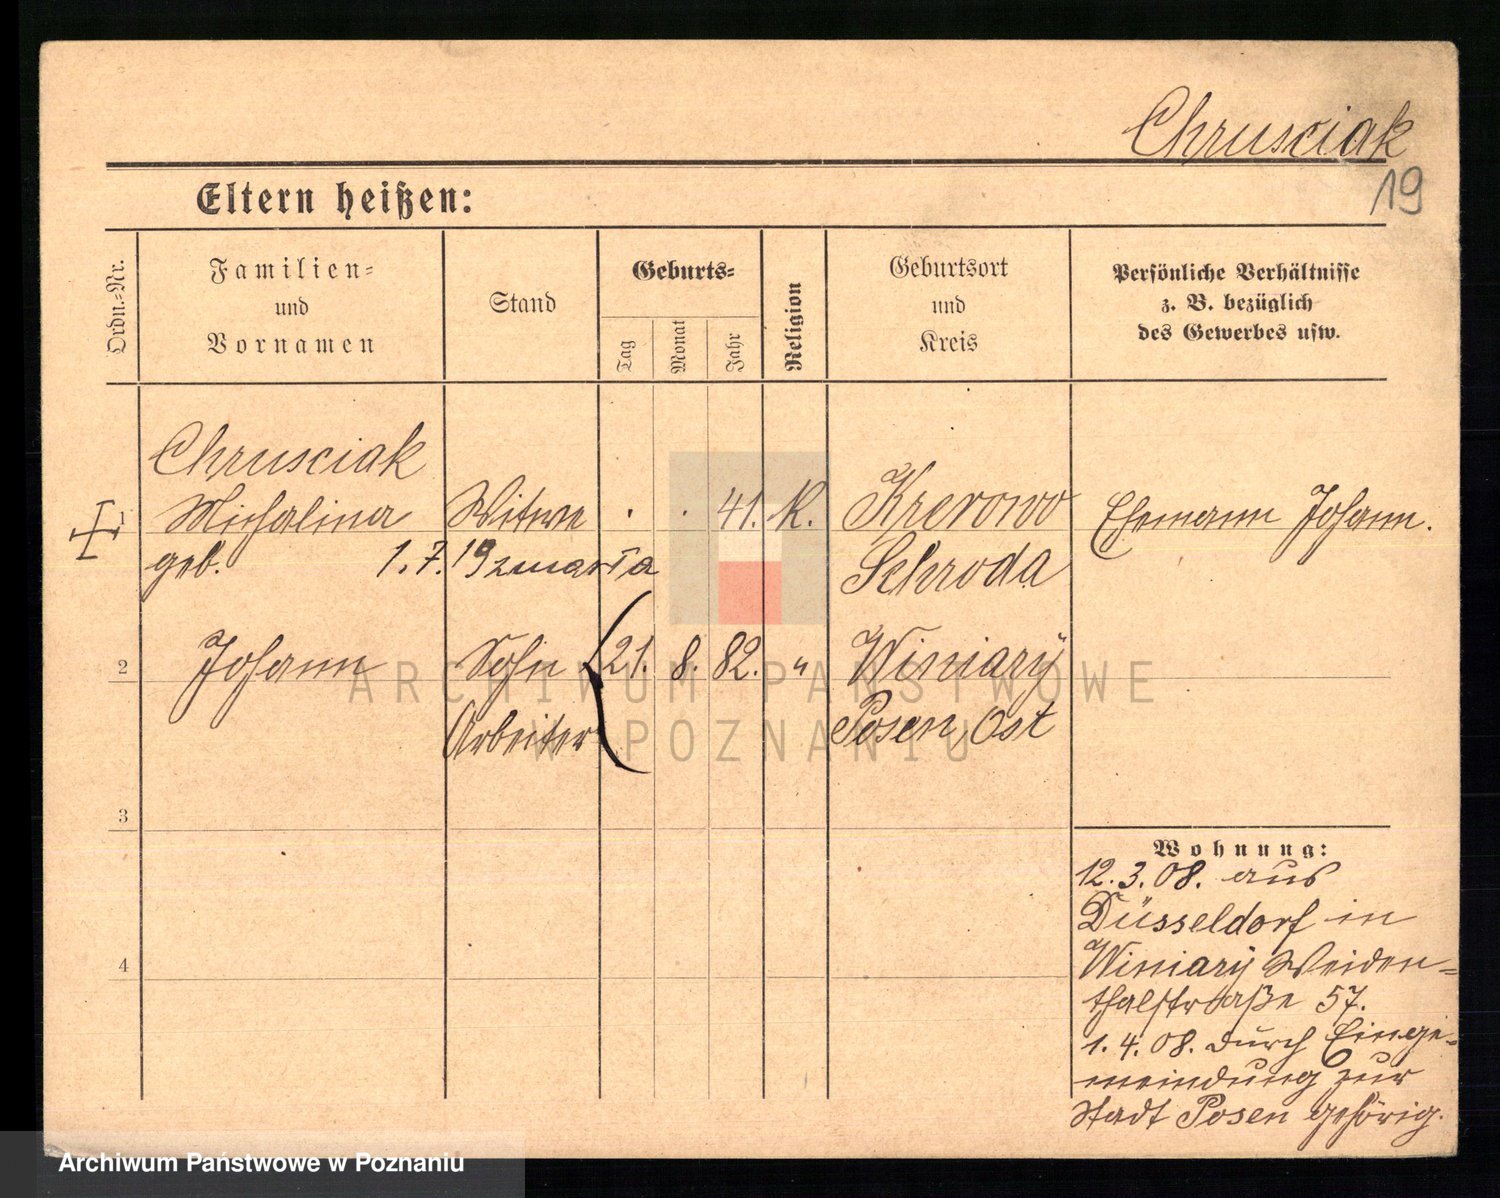 Chrusciak
19
Eltern heißen:
Ordn.-Nr.
Familien-
und
Vornamen
Stand
Geburts-
Tag
Monat
Jahr
Religion
Geburtsort
und
Kreis
Persönliche Verhältnisse
z. B. bezüglich
des Gewerbes usw.
Chrusciak
1 Michalina Witwe . . 41. K. Krerowo Ehemann Johann.
geb. 1.7.19 zmarła Schroda
2 Johann Sohn 21. 8. 82. " Winiary
Arbeiter Posen Ost
3
4
Wohnung:
12.3.08. aus
Düsseldorf in
Winiary Weiden-
thalstraße 57.
1.4.08. durch Einge-
meindung zur
Stadt Posen gehörig.
ARCHIWUM PAŃSTWOWE
W POZNANIU
Archiwum Państwowe w Poznaniu